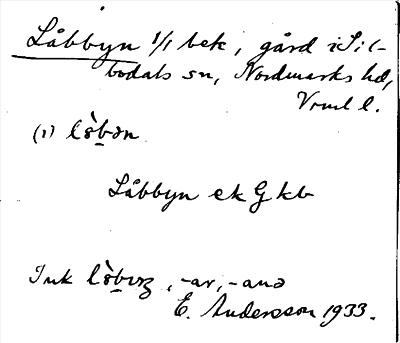 Låbbyn 1/1 bek, gård i Sil-
bodals sn, Nordmarks hd,
Vrml l.
(1) lɔ̀bən
Låbbyn ek G kb
Ink , -ar, -anə
E. Andersson 1933.